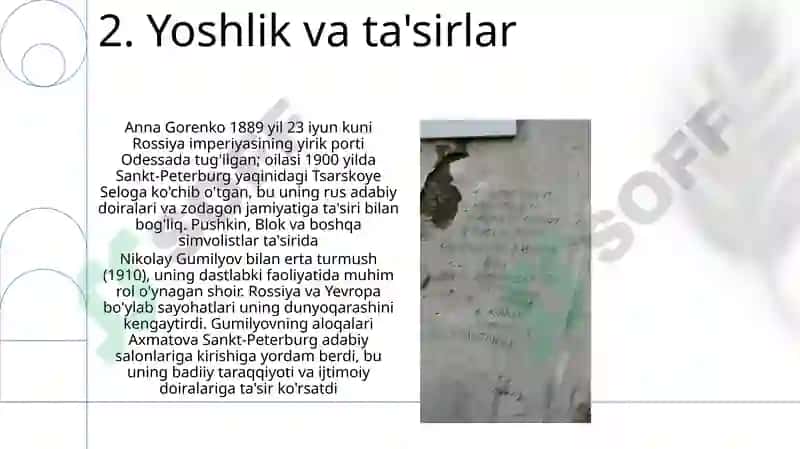 2. Yoshlik va ta'sirlar
Anna Gorenko 1889 yil 23 iyun kuni
Rossiya imperiyasining yirik porti
Odessada tug'ilgan; oilasi 1900 yilda
Sankt-Peterburg yaqinidagi Tsarskoye
Seloga ko'chib o'tgan, bu uning rus adabiy
doiralari va zodagon jamiyatiga ta'siri bilan
bog'liq. Pushkin, Blok va boshqa
simvolistlar ta'sirida
Nikolay Gumilyov bilan erta turmush
(1910), uning dastlabki faoliyatida muhim
rol o'ynagan shoir. Rossiya va Yevropa
bo'ylab sayohatlari uning dunyoqarashini
kengaytirdi. Gumilyovning aloqalari
Axmatova Sankt-Peterburg adabiy
salonlariga kirishiga yordam berdi, bu
uning badiiy taraqqiyoti va ijtimoiy
doiralariga ta'sir ko'rsatdi
SOFF